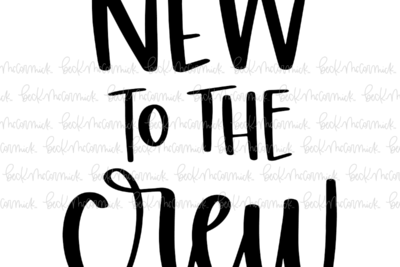 NEW
TO THE
crew